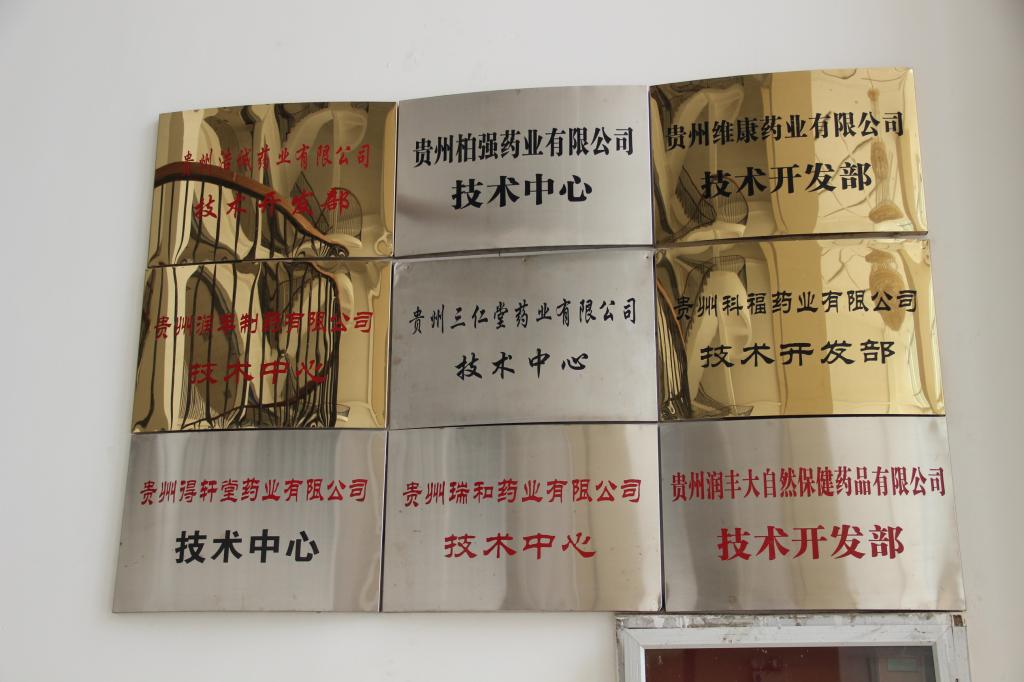 贵州浩诚药业有限公司
技术开发部
贵州柏强药业有限公司
技术中心
贵州维康药业有限公司
技术开发部
贵州润丰制药有限公司
技术中心
贵州三仁堂药业有限公司
技术中心
贵州科福药业有限公司
技术开发部
贵州得轩堂药业有限公司
技术中心
贵州瑞和药业有限公司
技术中心
贵州润丰大自然保健药品有限公司
技术开发部